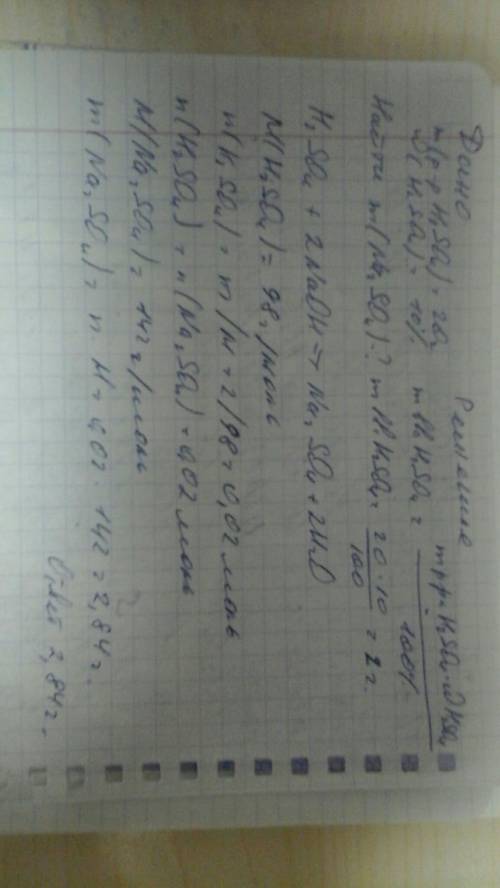 Дано Решение
m р-р H₂SO₄) = 20г
ω(H₂SO₄) = 10%
m вв H₂SO₄ = m р-р H₂SO₄ · ω H₂SO₄ / 100%
Найти m(Na₂SO₄)? m вв H₂SO₄ = 20·10 / 100 = 2 г.
H₂SO₄ + 2NaOH → Na₂SO₄ + 2H₂O
M(H₂SO₄) = 98 г/моль
n(H₂SO₄) = m/M = 2/98 = 0,02 моль
n(H₂SO₄) = n(Na₂SO₄) = 0,02 моль
M(Na₂SO₄) = 142 г/моль
m(Na₂SO₄) = n · M = 0,02 · 142 = 2,84 г.
Ответ 2,84 г.